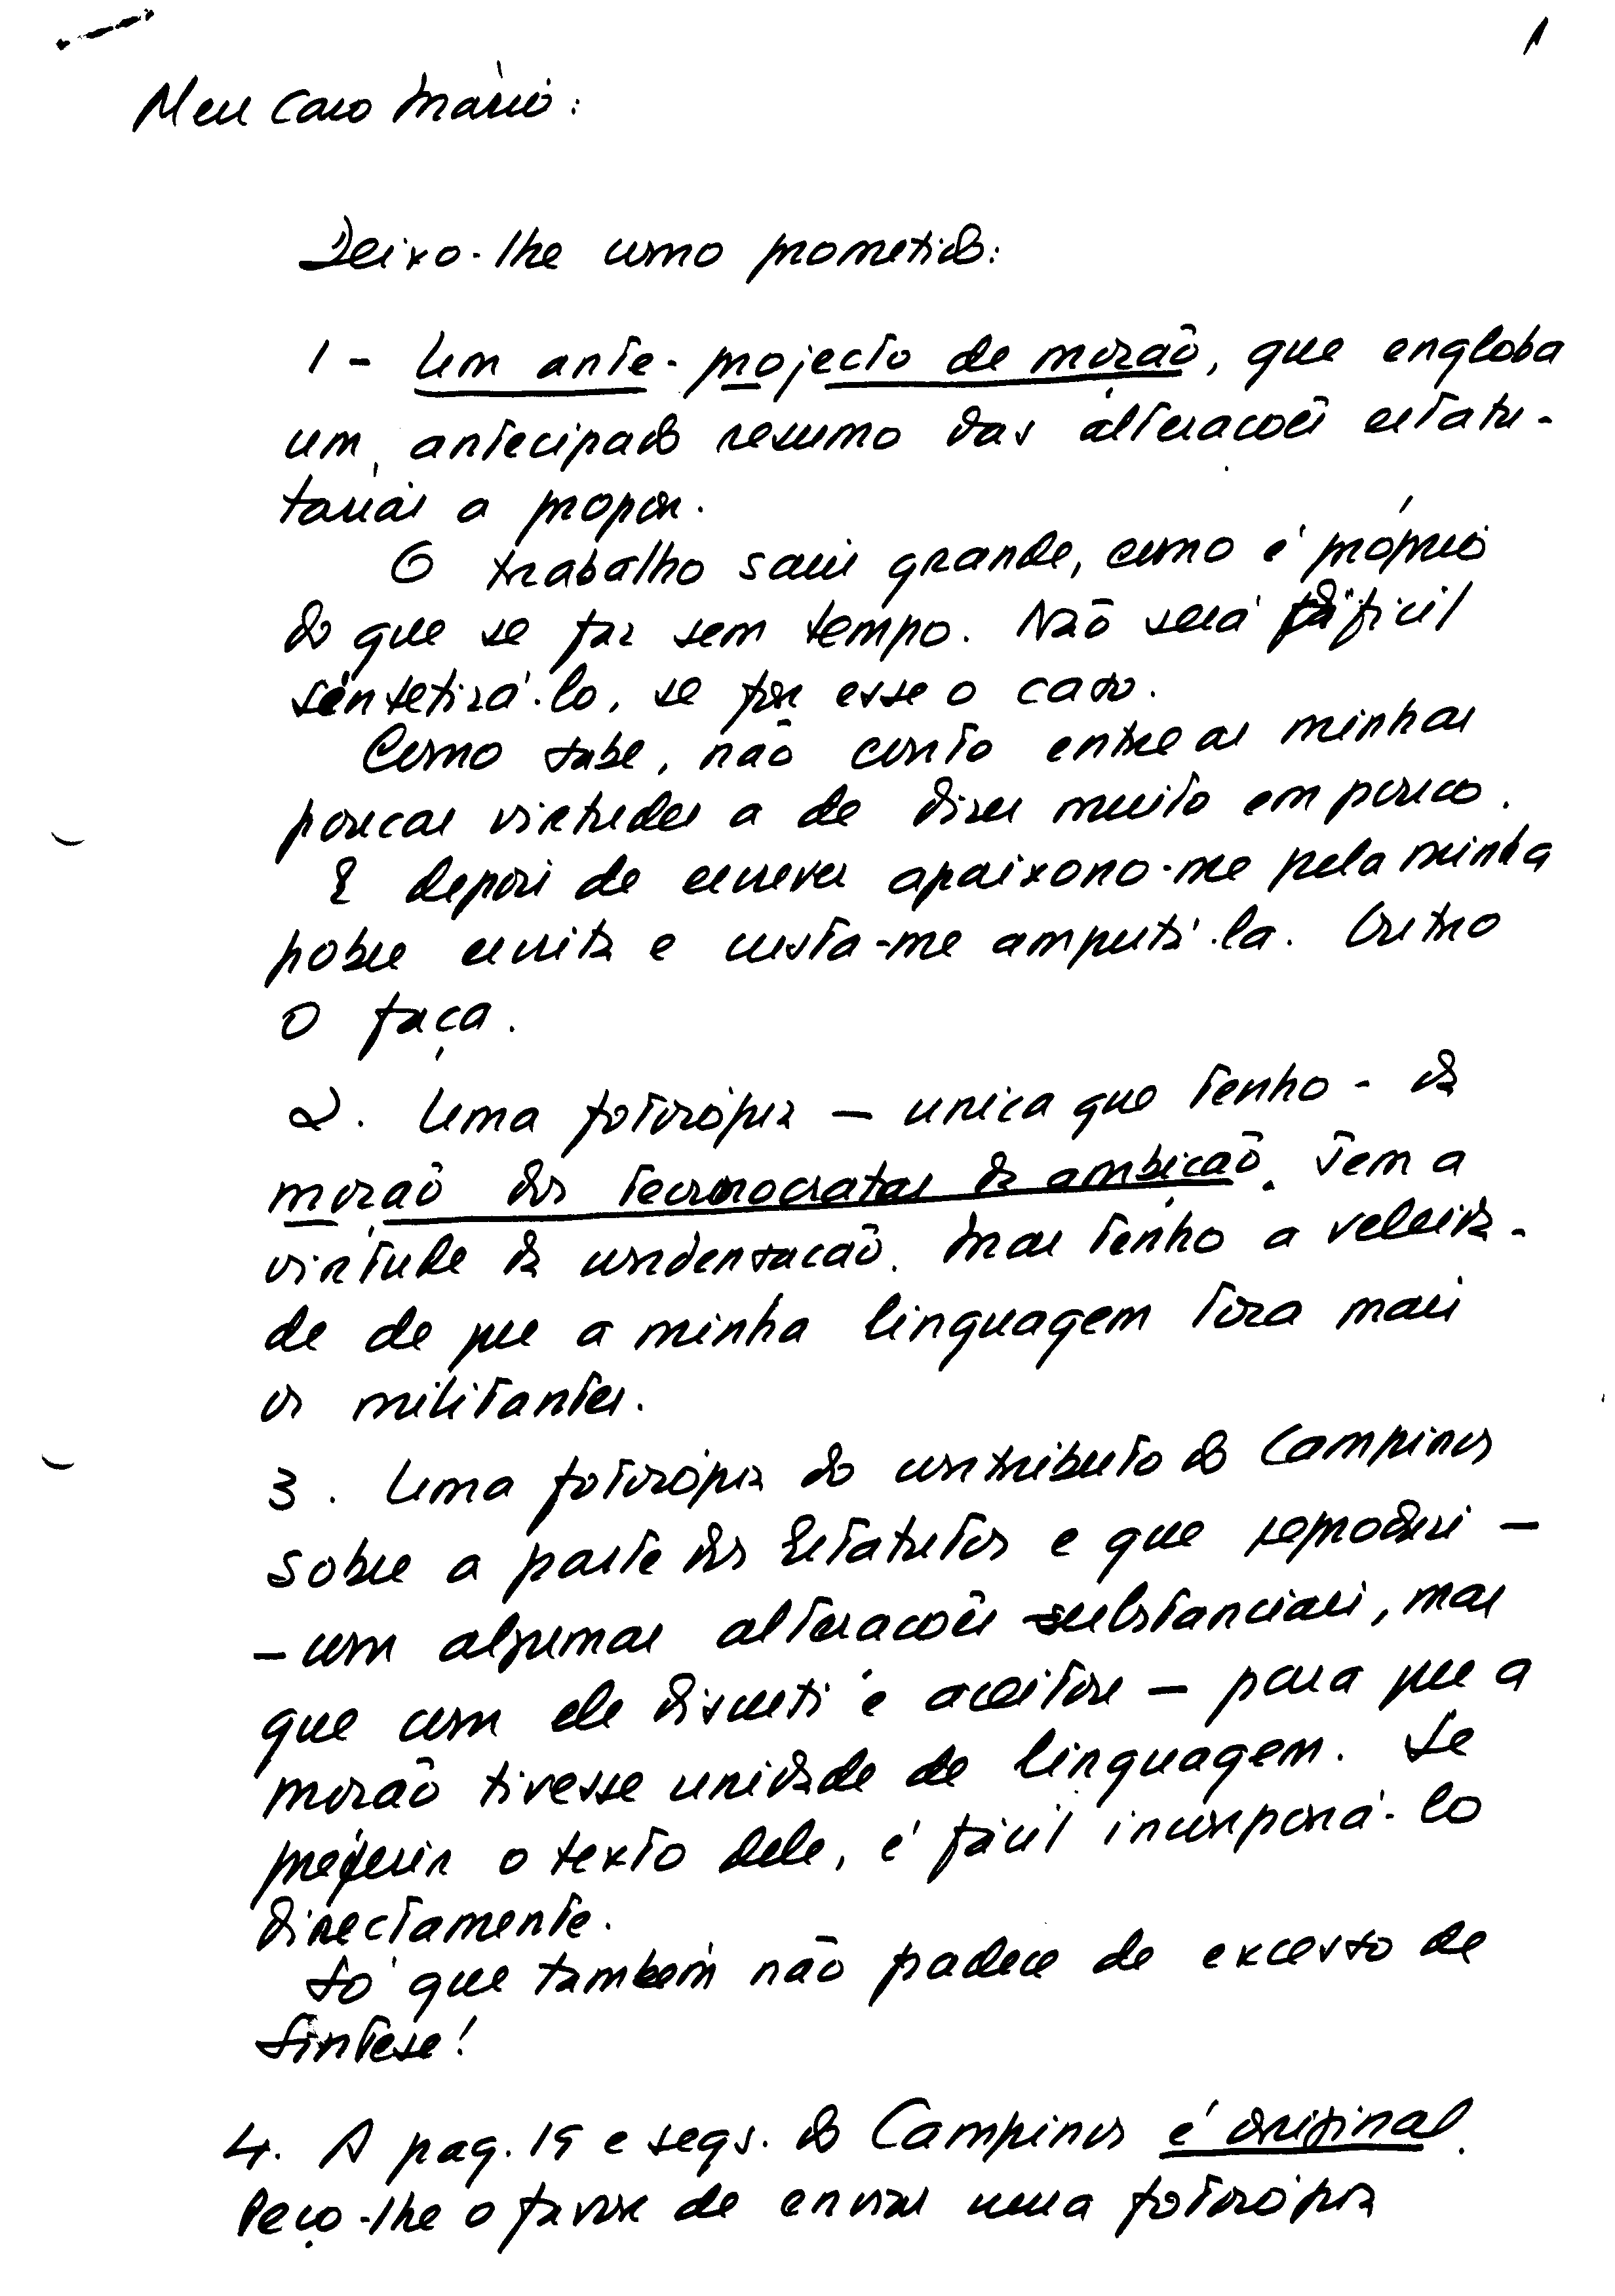 1
Meu caro Mário:
Deixo-lhe como prometido:
1 - Um ante-projecto de moção, que engloba
um antecipado resumo das alterações estatu-
tárias a propor.
O trabalho saiu grande, como é próprio
do que se faz sem tempo. Não será difícil
sintetizá-lo, se for esse o caso.
Como sabe, não conto entre as minhas
poucas virtudes a de dizer muito em pouco.
E depois de escrever apaixono-me pela minha
pobre escrita e custa-me amputá-la. Outro
o faça.
2. Uma fotocópia - unica que tenho - da
moção dos tecnocratas da ambição. Tem a
virtude da condensação. Mas tenho a veleida-
de de que a minha linguagem toca mais
os militantes.
3. Uma fotocópia do contributo do Campinos
sobre a parte dos Estatutos e que reproduzi -
- com algumas alterações substanciais, mas
que com ele discuti e aceitou - para que a
moção tivesse unidade de linguagem. Se
preferir o texto dele, é fácil incorporá-lo
directamente.
Só que também não padece de excesso de
síntese!
4. A pag. 19 e segs. do Campinos é original.
Peço-lhe o favor de enviar uma fotocópia